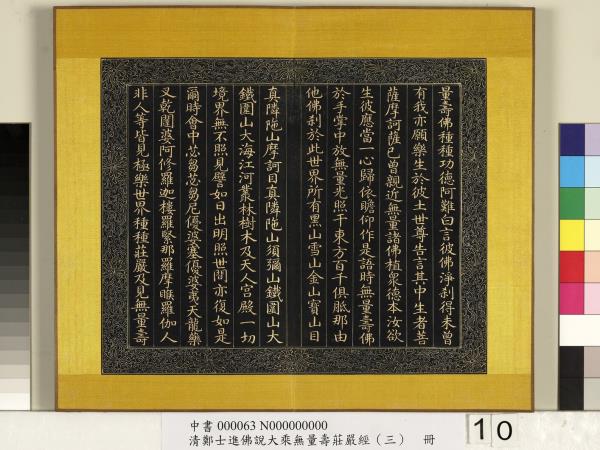 量壽佛種種功德阿難白言彼佛淨刹得未曾
有我亦願樂生於彼土世尊告言其中生者菩
薩摩訶薩已曾親近無量諸佛植眾德本汝欲
生彼應當一心歸依瞻仰作是語時無量壽佛
於手掌中放無量光照于東方百千俱胝那由
他佛刹於此世界所有黑山雪山金山寶山目
真隣陁山摩訶目真隣陁山須彌山鐵圍山大
鐵圍山大海江河叢林樹木及天人宮殿一切
境界無不照見譬如日出明照世間亦復如是
爾時會中苾芻苾芻尼優婆塞優婆夷天龍藥
叉乾闥婆阿修羅迦樓羅緊那羅摩睺羅伽人
非人等皆見極樂世界種種莊嚴及見無量壽
中書 000063 N000000000
清鄭士進佛說大乘無量壽莊嚴經（三） 冊
10